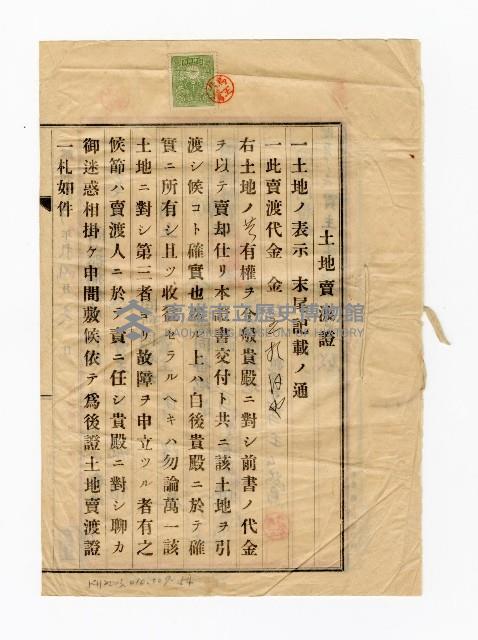 土地賣渡證
一土地ノ表示 末尾記載ノ通
一此賣渡代金 金
右土地ノ 有權ヲ今般貴殿ニ對シ前書ノ代金
ヲ以テ賣却仕リ本證書交付ト共ニ該土地ヲ引
渡シ候コト確實也 上ハ自後貴殿ニ於テ確
實ニ所有シ且ツ收 セラルヘキハ勿論萬一該
土地ニ對シ第三者ヨリ故障ヲ申立ツル者有之
候節ハ賣渡人ニ於 責ニ任シ貴殿ニ對シ聊カ
御迷惑相掛ケ申間敷候依テ為後證土地賣渡證
一札如件
高雄市立歷史博物館
KAOHSIUNG MUSEUM OF HISTORY